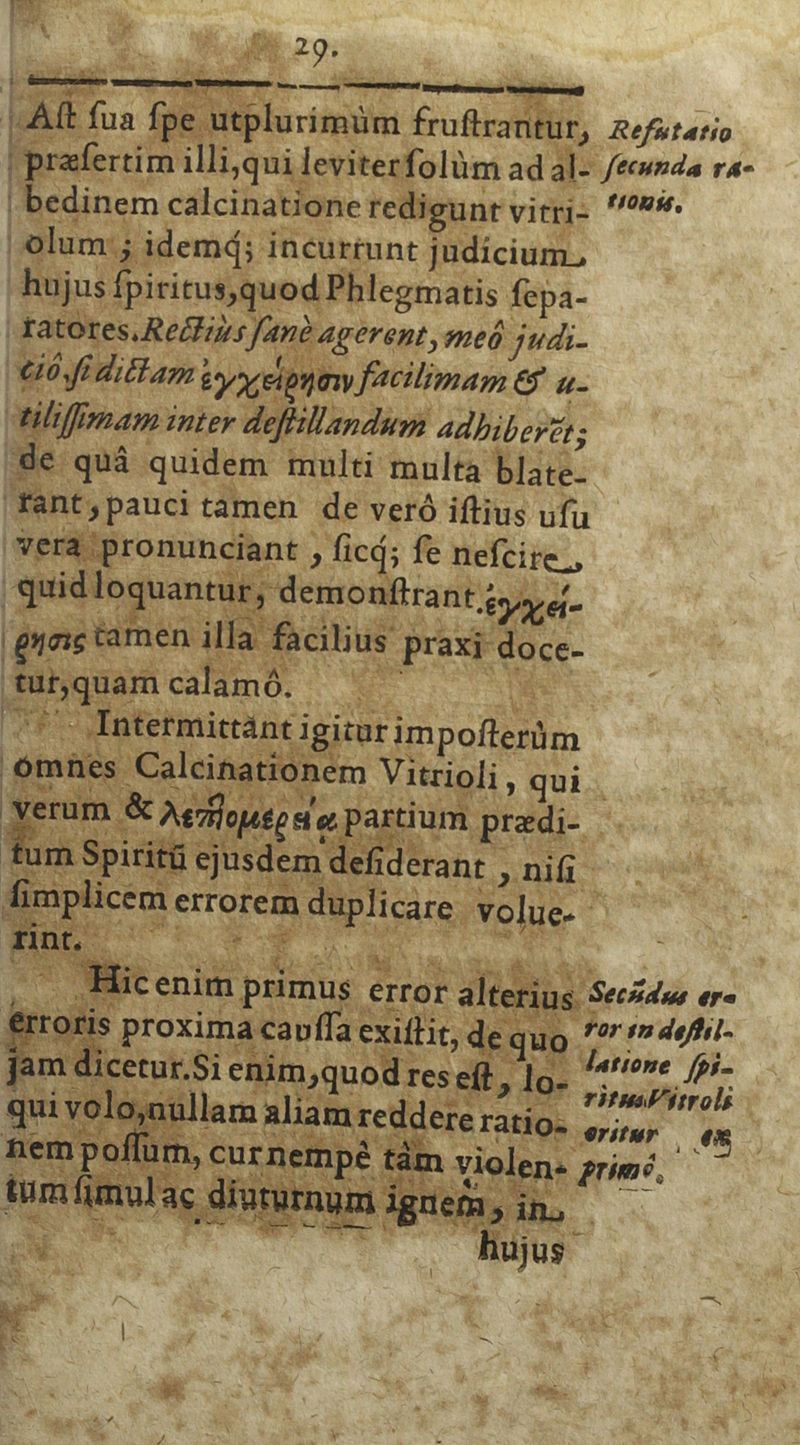 29.
Aſt ſua ſpe utplurimùm fruſtrantur,
præſertim illi,qui leviter ſolùm ad al-
bedinem calcinatione redigunt vitri-
olum ; idemq́; incurrunt judicium
hujus ſpiritus,quod Phlegmatis ſepa-
ratores.Rectiùs ſanè agerent, meô judi-
ciô ſi dictam ἐγχείρησιν facilimam & u-
tiliſſimam inter deſtillandum adhiberẽt;
de quâ quidem multi multa blate-
rant, pauci tamen de verô iſtius uſu
vera pronunciant , ſicq́; ſe neſcire,
quid loquantur, demonſtrant.ἐγχεί-
ρησις tamen illa facilius praxi doce-
tur,quam calamô.
Intermittant igitur impoſterùm
omnes Calcinationem Vitrioli, qui
verum & λεπτομερεία partium prædi-
tum Spiritũ ejusdem deſiderant , niſi
ſimplicem errorem duplicare volue-
rint.
Hic enim primus error alterius
erroris proxima cauſſa exiſtit, de quo
jam dicetur.Si enim,quod res eſt, lo-
qui volo,nullam aliam reddere ratio-
nem poſſum, cur nempè tàm violen-
tum ſimul ac diuturnum ignem, in
hujus
Refutatio
ſecunda ra-
tionis.
Secũdus er-
ror in deſtil-
latione ſpi-
ritus Vitroli
oritur ex
primô.